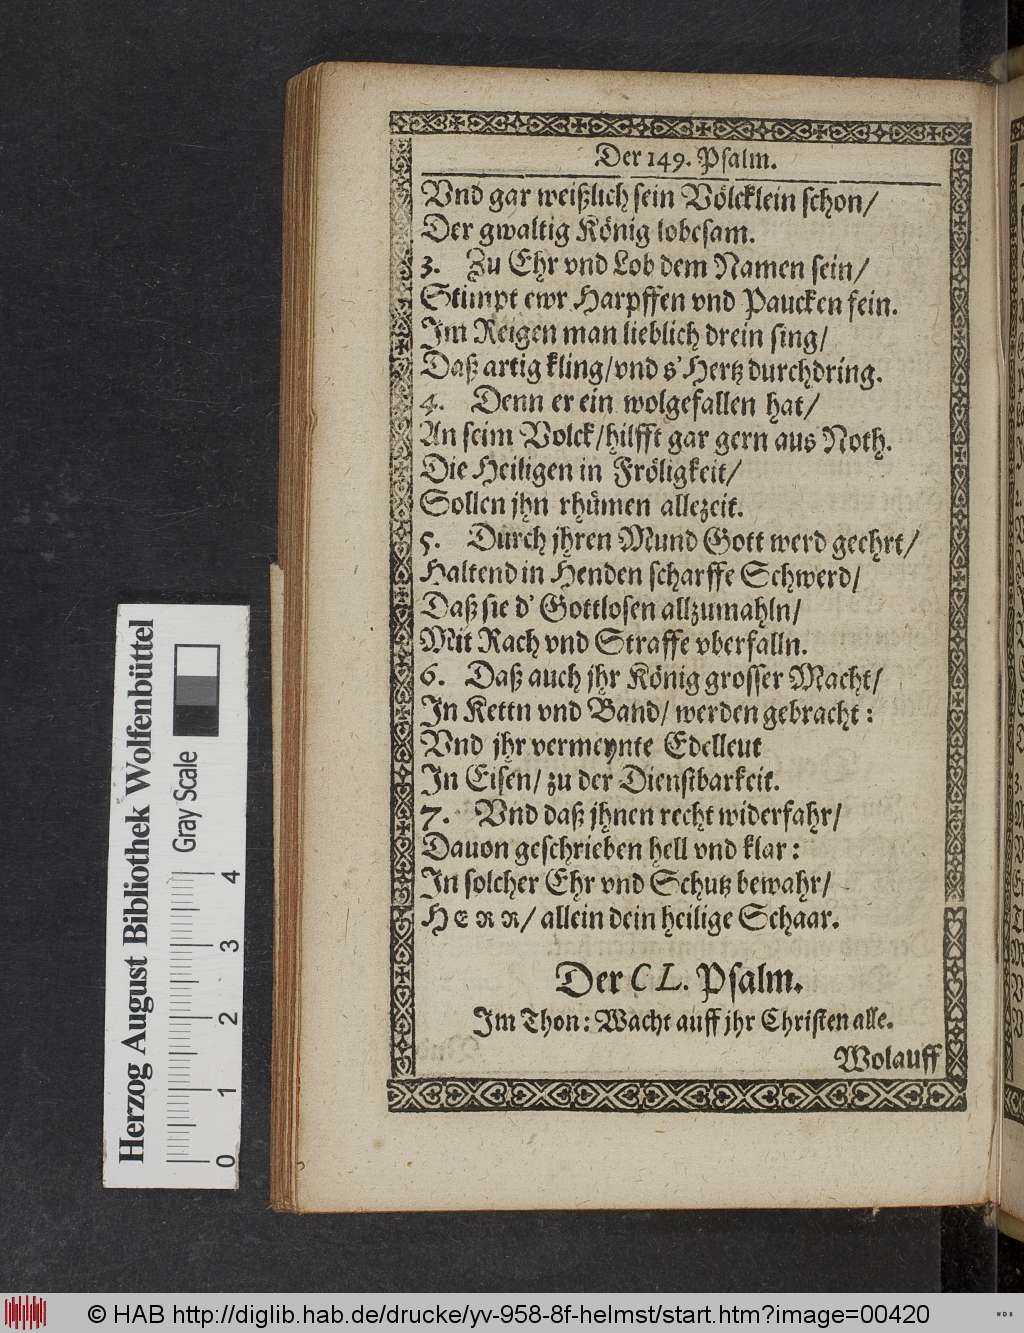 Der 149. Psalm.
Vnd gar weißlich sein Völcklein schon/
Der gwaltig König lobesam.
3. Zu Ehr vnd Lob dem Namen sein/
Stimpt ewr Harpffen vnd Paucken fein.
Im Reigen man lieblich drein sing/
Daß artig kling/vnd s'Hertz durchdring.
4. Denn er ein wolgefallen hat/
An seim Volck/hilfft gar gern aus Noth.
Die Heiligen in Fröligkeit/
Sollen jhn rhümen allezeit.
5. Durch jhren Mund Gott werd geehrt/
Haltend in Henden scharffe Schwerd/
Daß sie d' Gottlosen allzumahln/
Mit Rach vnd Straffe vberfalln.
6. Daß auch jhr König grosser Macht/
In Kettn vnd Band/ werden gebracht:
Vnd jhr vermeynte Edelleut
In Eisen/ zu der Dienstbarkeit.
7. Vnd daß jhnen recht widerfahr/
Dauon geschrieben hell vnd klar:
In solcher Ehr vnd Schutz bewahr/
HERR/ allein dein heilige Schaar.
Der CL. Psalm.
Im Thon: Wacht auff jhr Christen alle.
Wolauff
Herzog August Bibliothek Wolfenbüttel
Gray Scale
0 1 2 3 4
© HAB http://diglib.hab.de/drucke/yv-958-8f-helmst/start.htm?image=00420